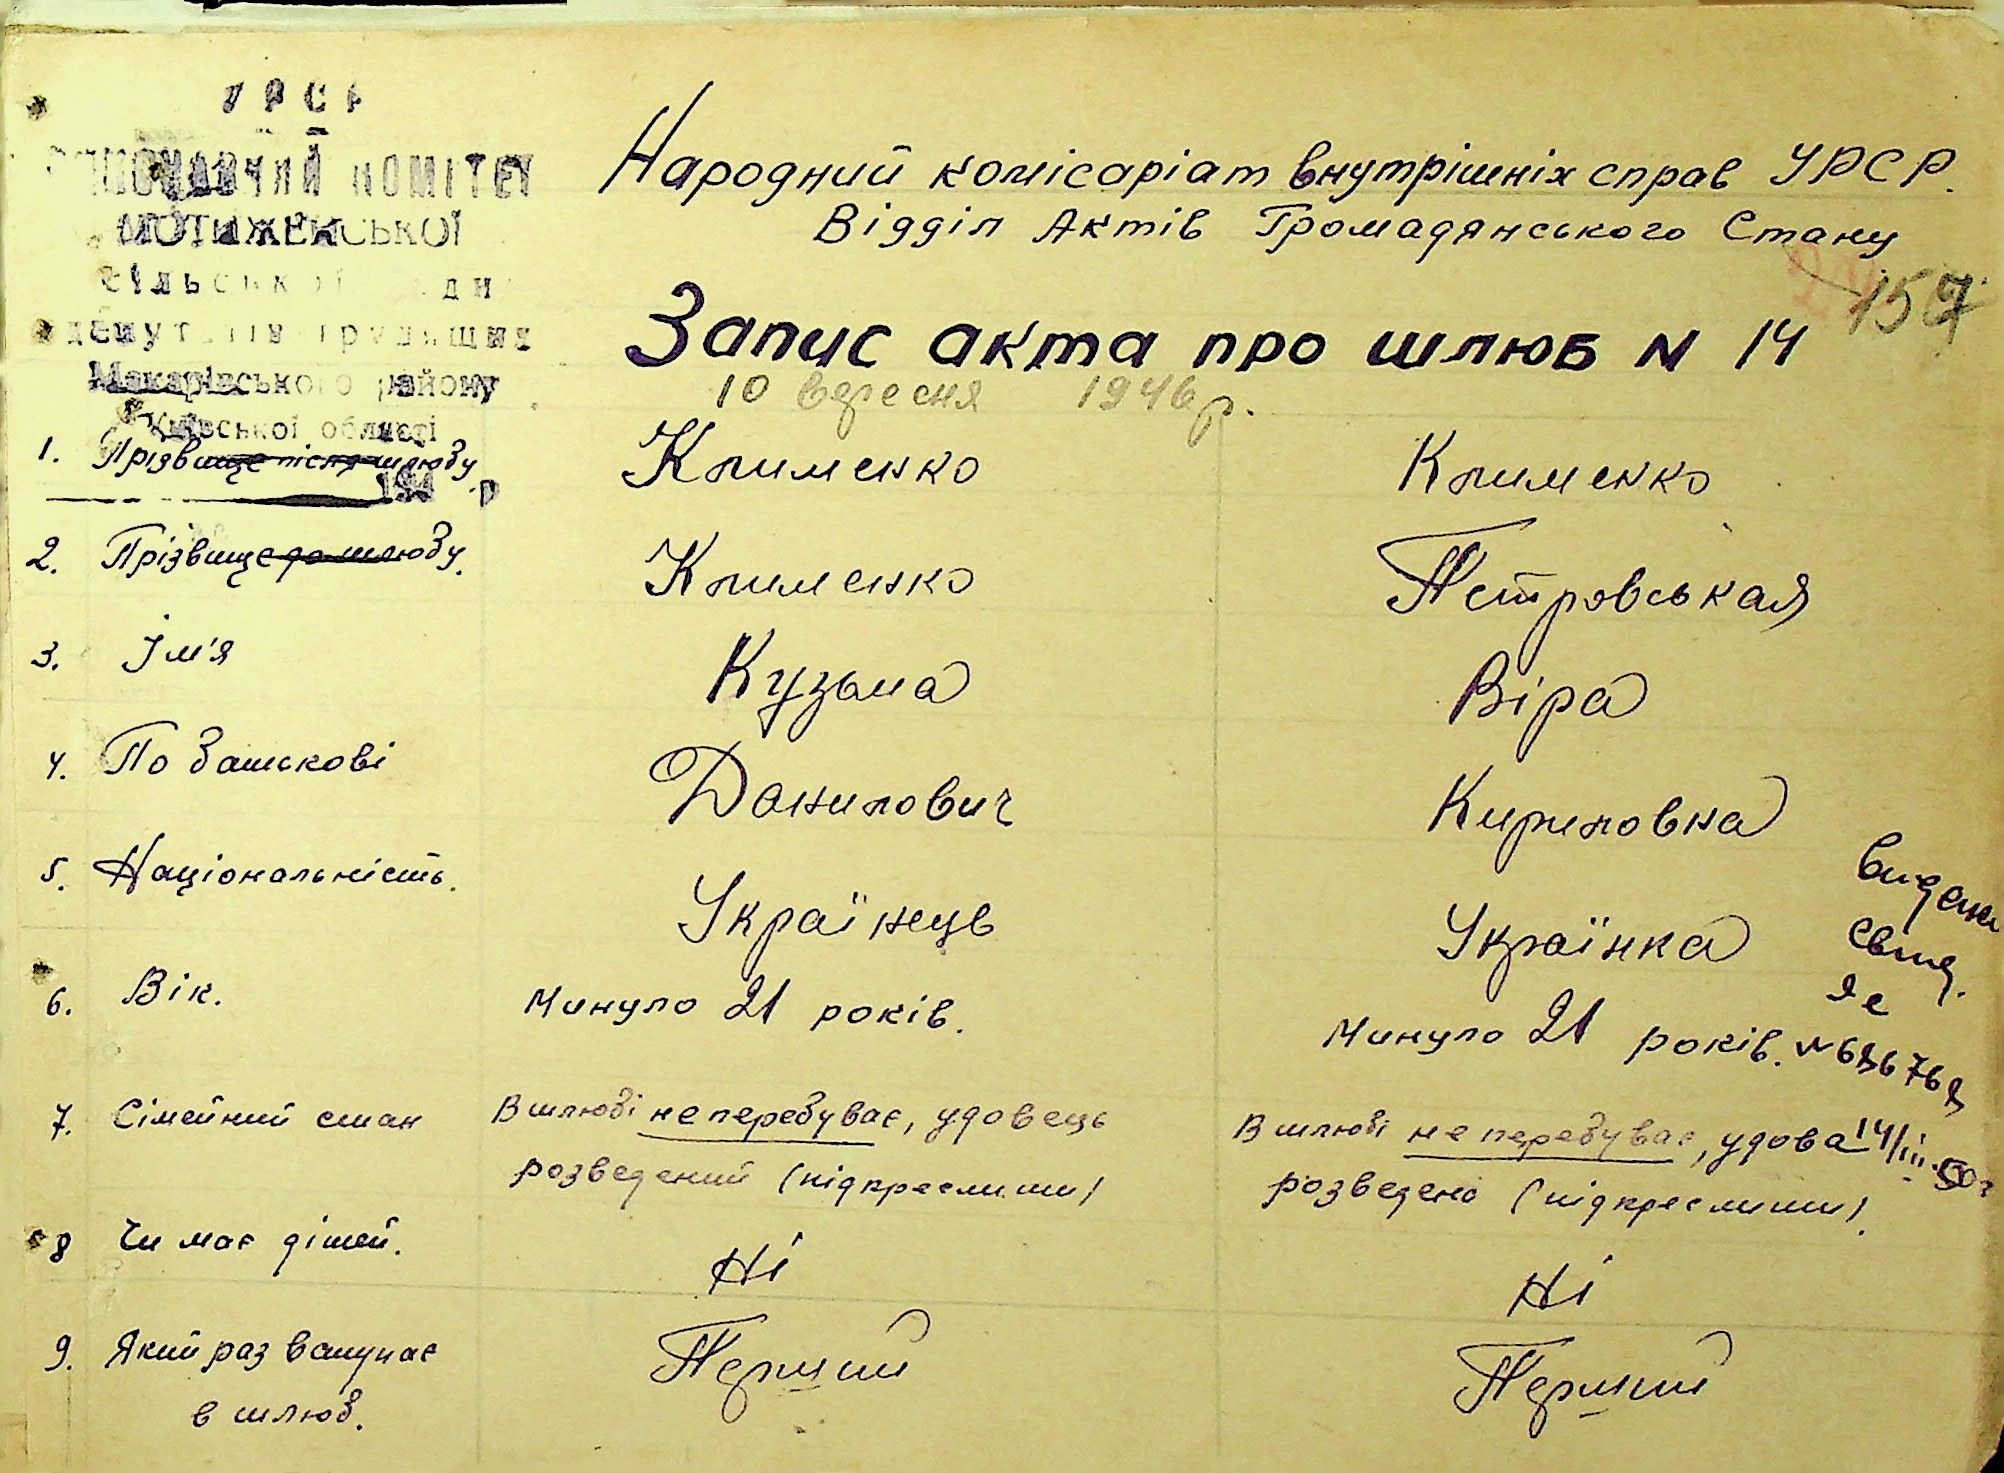 УРСР
ВИКОНАВЧИЙ КОМІТЕТ
МОТИЖЕНСЬКОЇ
сільської ради
депутатів трудящих
Макарівського району
Київської області
194 р
Народний комісаріат внутрішніх справ УРСР.
Відділ Актів Громадянського Стану
157
Запис акта про шлюб N 14
10 вересня 1946 р.
1. Прізвище після шлюбу Клименко Клименко
2. Прізвище до шлюбу. Клименко Петровськая
3. Ім'я Кузьма Віра
4. По башкові Данилович Кириловна
5. Національність. Українець Українка
6. Вік. Минуло 21 років. Минуло 21 років.
видано
свид.
7. Сімейний стан В шлюбі не перебуває, удовець В шлюбі не перебуває, удова
14/III.50г
розведений (підкреслити) розведена (підкреслити).
8 Чи має дітей. Ні Ні
9. Який раз вступає Перший Перший
в шлюб.